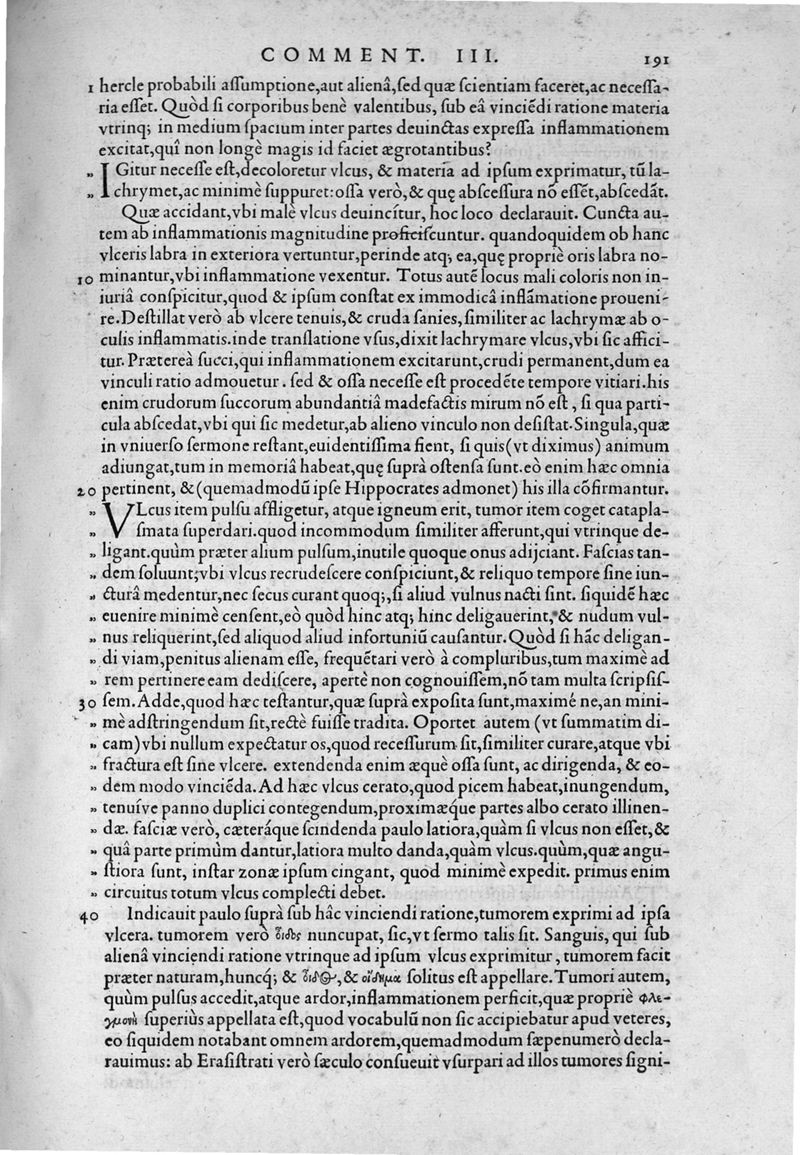 COMMENT. III. 191
1 hercle probabili aſſumptione,aut alienâ,ſed quæ ſcientiam faceret,ac neceſſa-
ria eſſet. Quòd ſi corporibus benè valentibus, ſub eâ vinciẽdi ratione materia
vtrinq; in medium ſpacium inter partes deuinctas expreſſa inflammationem
excitat,quî non longè magis id faciet ægrotantibus?
„ IGitur neceſſe eſt,decoloretur vlcus, & materia ad ipſum exprimatur, tũ la-
„ chrymet,ac minimè ſuppuret:oſſa verò,& quę abſceſſura nõ eſſẽt,abſcedãt.
Quæ accidant,vbi malè vlcus deuincítur, hoc loco declarauit. Cuncta au-
tem ab inflammationis magnitudine proficiſcuntur. quandoquidem ob hanc
vlceris labra in exteriora vertuntur,perinde atq; ea,quę propriè oris labra no-
10 minantur,vbi inflammatione vexentur. Totus autẽ locus mali coloris non in-
iuriâ conſpicitur,quod & ipſum conſtat ex immodicâ inflãmatione proueni-
re.Deſtillat verò ab vlcere tenuis,& cruda ſanies,ſimiliter ac lachrymæ ab o-
culis inflammatis.inde tranſlatione vſus,dixit lachrymare vlcus,vbi ſic affici-
tur. Prætereà ſucci,qui inflammationem excitarunt,crudi permanent,dum ea
vinculi ratio admouetur. ſed & oſſa neceſſe eſt procedẽte tempore vitiari.his
enim crudorum ſuccorum abundantiâ madefactis mirum nõ eſt, ſi qua parti-
cula abſcedat,vbi qui ſic medetur,ab alieno vinculo non deſiſtat.Singula,quæ
in vniuerſo ſermone reſtant,euidentiſſima fient, ſi quis(vt diximus) animum
adiungat,tum in memoriâ habeat,quę ſuprà oſtenſa ſunt.eò enim hæc omnia
20 pertinent, &(quemadmodũ ipſe Hippocrates admonet) his illa cõfirmantur.
„ VLcus item pulſu affligetur, atque igneum erit, tumor item coget catapla-
„ ſmata ſuperdari.quod incommodum ſimiliter afferunt,qui vtrinque de-
„ ligant.quùm præter alium pulſum,inutile quoque onus adijciant. Faſcias tan-
„ dem ſoluunt;vbi vlcus recrudeſcere conſpiciunt,& reliquo tempore ſine iun-
„ cturâ medentur,nec ſecus curant quoq;,ſi aliud vulnus nacti ſint. ſiquidẽ hæc
„ euenire minimè cenſent,eò quòd hinc atq; hinc deligauerint,& nudum vul-
„ nus reliquerint,ſed aliquod aliud infortuniũ cauſantur.Quòd ſi hãc deligan-
„ di viam,penitus alienam eſſe, frequẽtari verò à compluribus,tum maximè ad
„ rem pertinere eam dediſcere, apertè non cognouiſſem,nõ tam multa ſcripſiſ-
30 ſem.Adde,quod hæc teſtantur,quæ ſuprà expoſita ſunt,maximé ne,an mini-
„ mè adſtringendum ſit,rectè fuiſſe tradita. Oportet autem (vt ſummatim di-
„ cam)vbi nullum expectatur os,quod receſſurum ſit,ſimiliter curare,atque vbi
„ fractura eſt ſine vlcere. extendenda enim æquè oſſa ſunt, ac dirigenda, & eo-
„ dem modo vinciẽda.Ad hæc vlcus cerato,quod picem habeat,inungendum,
„ tenuíve panno duplici contegendum,proximæq́ue partes albo cerato illinen-
„ dæ. faſciæ verò, cæteráque ſcindenda paulo latiora,quàm ſi vlcus non eſſet,&
„ quâ parte primùm dantur,latiora multo danda,quàm vlcus.quùm,quæ angu-
„ ſtiora ſunt, inſtar zonæ ipſum cingant, quod minimè expedit. primus enim
„ circuitus totum vlcus complecti debet.
40 Indicauit paulo ſuprà ſub hâc vinciendi ratione,tumorem exprimi ad ipſa
vlcera. tumorem verò οἶδος nuncupat, ſic,vt ſermo talis ſit. Sanguis, qui ſub
alienâ vinciendi ratione vtrinque ad ipſum vlcus exprimitur, tumorem facit
præter naturam,huncq́; & οἶδος,& οἴδημα ſolitus eſt appellare.Tumori autem,
quùm pulſus accedit,atque ardor,inflammationem perficit,quæ propriè φλε-
γμονὴ ſuperiùs appellata eſt,quod vocabulũ non ſic accipiebatur apud veteres,
eo ſiquidem notabant omnem ardorem,quemadmodum ſæpenumerò decla-
rauimus: ab Eraſiſtrati verò ſæculo conſueuit vſurpari ad illos tumores ſigni-